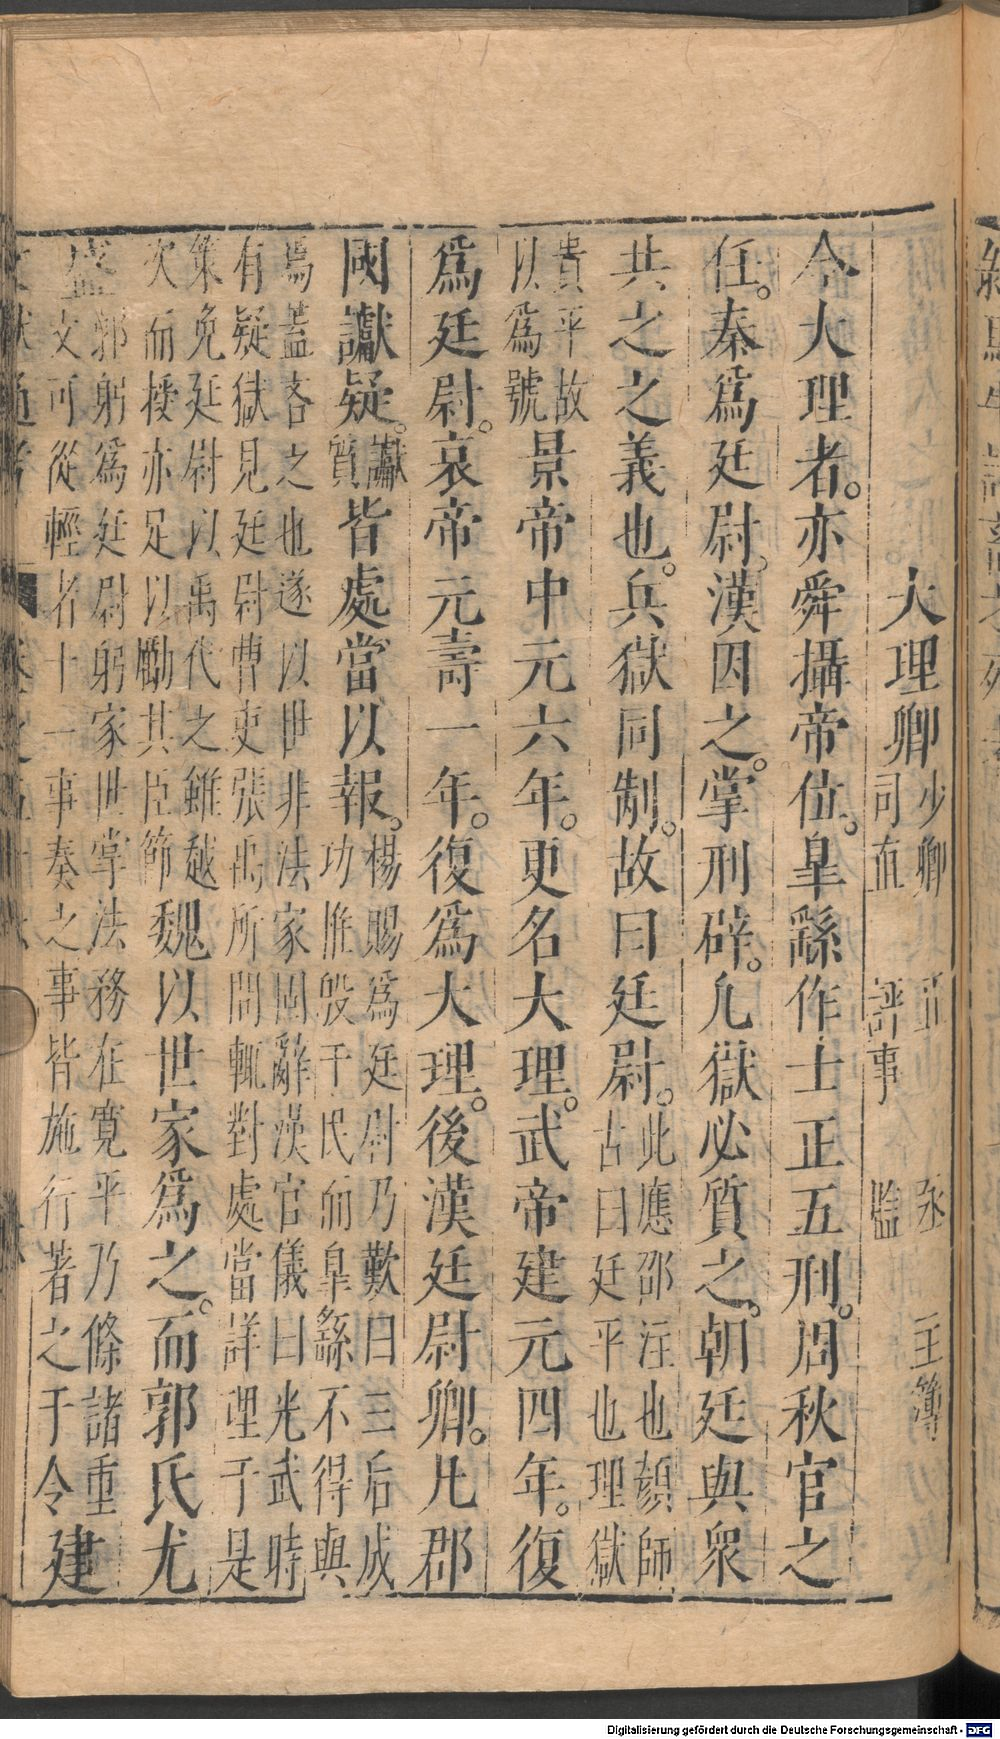 大理卿 少卿 正 丞 主簿
司直 評事 監
今大理者。亦舜攝帝位。臯繇作士正五刑。周秋官之
任。秦爲廷尉。漢因之。掌刑辟。凡獄必質之。朝廷與衆
共之之義也。兵獄同制。故曰廷尉。
此應邵注也顔師
古曰廷平也理獄
貴平故
以爲號
景帝中元六年。更名大理。武帝建元四年。復
爲廷尉。哀帝元壽一年。復爲大理。後漢廷尉卿。凡郡
國讞疑。
讞
質
皆處當以報。
楊賜爲廷尉乃歎曰三后成
功惟殷于民而臯繇不得與
焉蓋吝之也遂以世非法家固辭漢官儀曰光武時
有疑獄見廷尉曹吏張禹所問輒對處當詳理于是
策免廷尉以禹代之雖越
次而授亦足以勵其臣節
魏以世家爲之。而郭氏尤
盛
郭躬爲廷尉躬家世掌法務在寬平乃條諸重
文可從輕者十一事奏之事皆施行著之于令
建
Digitalisierung gefördert durch die Deutsche Forschungsgemeinschaft - DFG